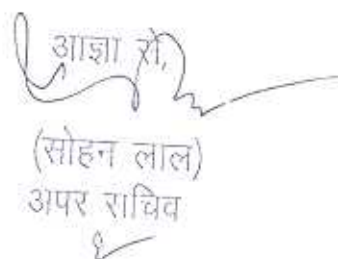 आज्ञा से,
(सोहन लाल)
अपर सचिव